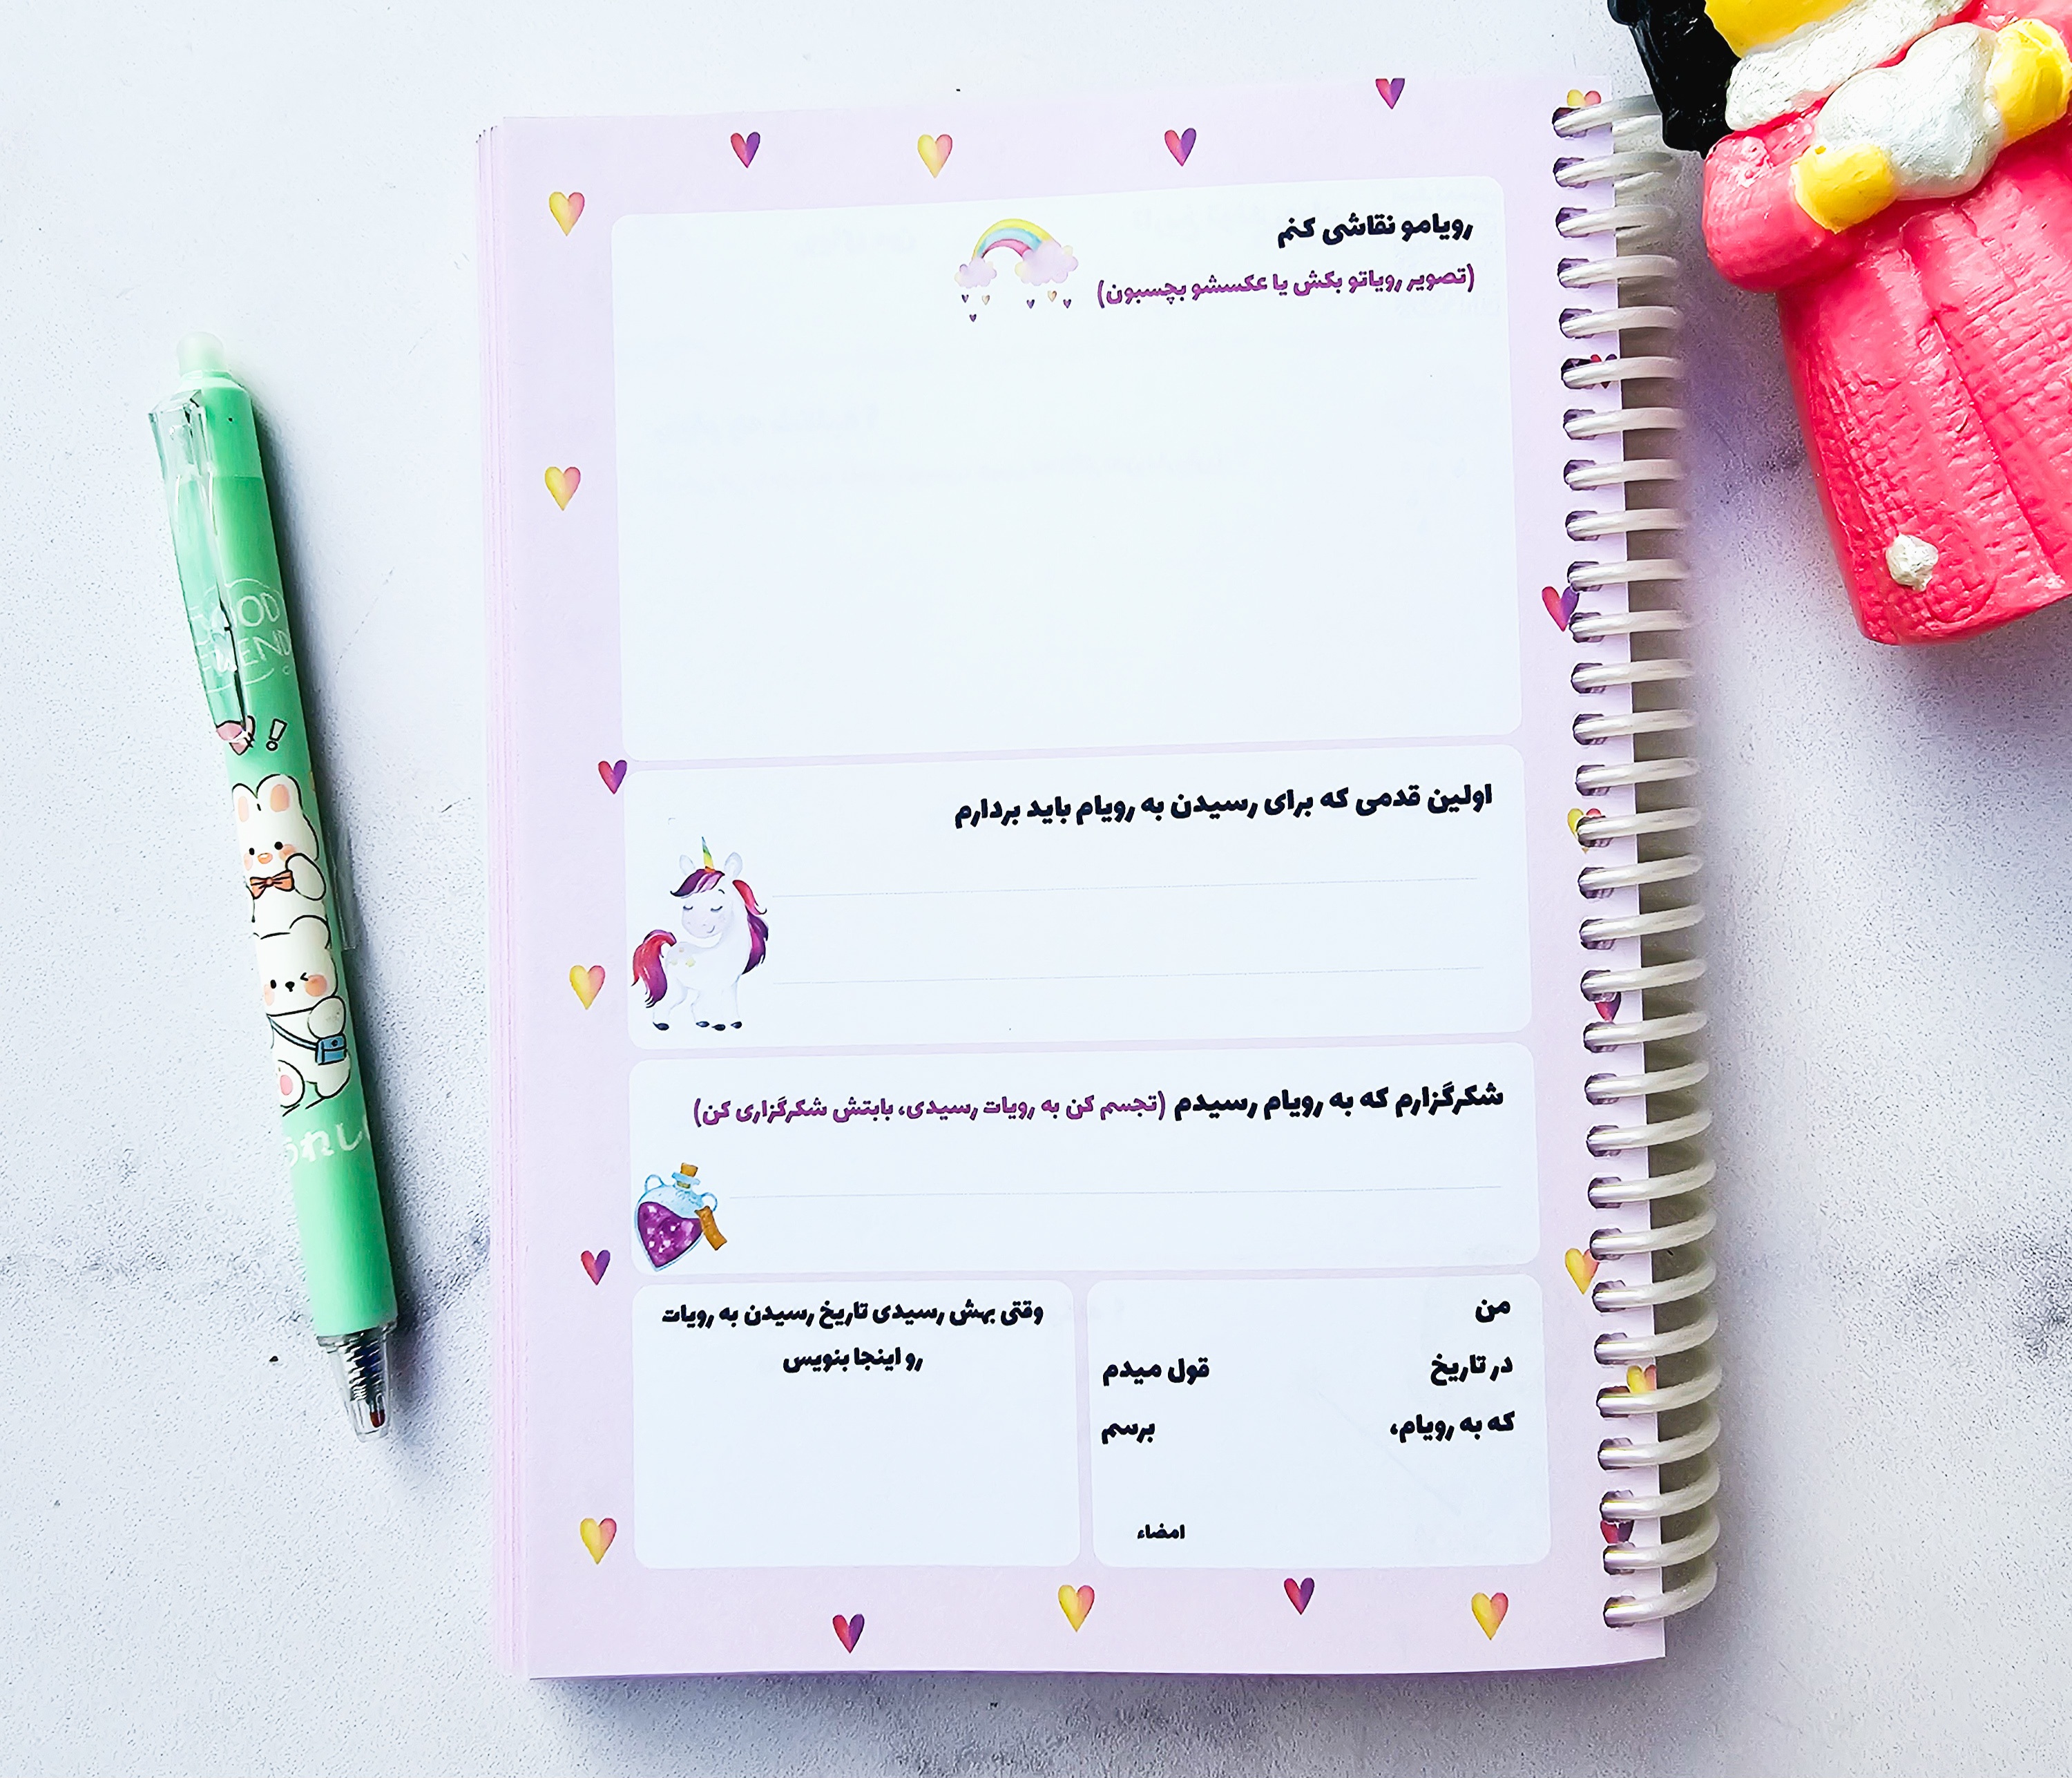 رویامو نقاشی کنم
(تصویر رویاتو بکش یا عکسشو بچسبون)
اولین قدمی که برای رسیدن به رویام باید بردارم
شکرگزارم که به رویام رسیدم (تجسم کن به رویات رسیدی، بابتش شکرگزاری کن)
من
در تاریخ قول میدم
که به رویام، برسم
امضاء
وقتی بهش رسیدی تاریخ رسیدن به رویات
رو اینجا بنویس